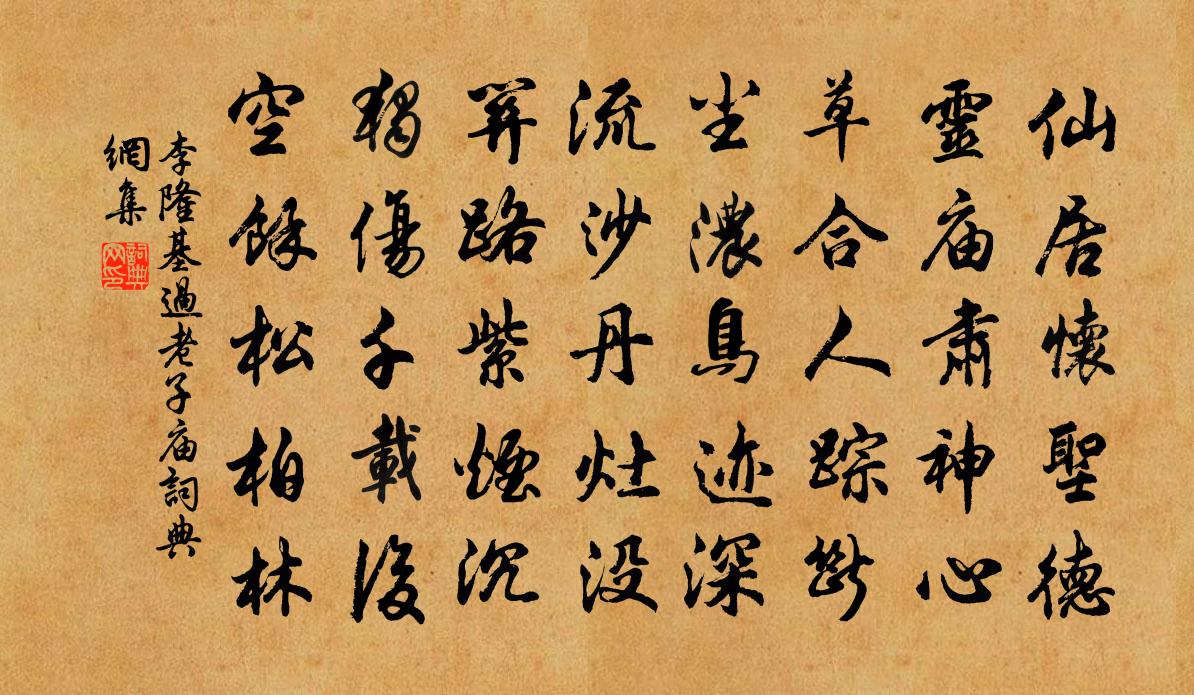 仙居懷聖德
靈庙肅神心
草合人踪斷
尘濃鳥迹深
流沙丹灶没
關路紫煙沉
獨傷千載後
空餘松柏林
李隆基過老子庙詞典
網集
詞典
网印